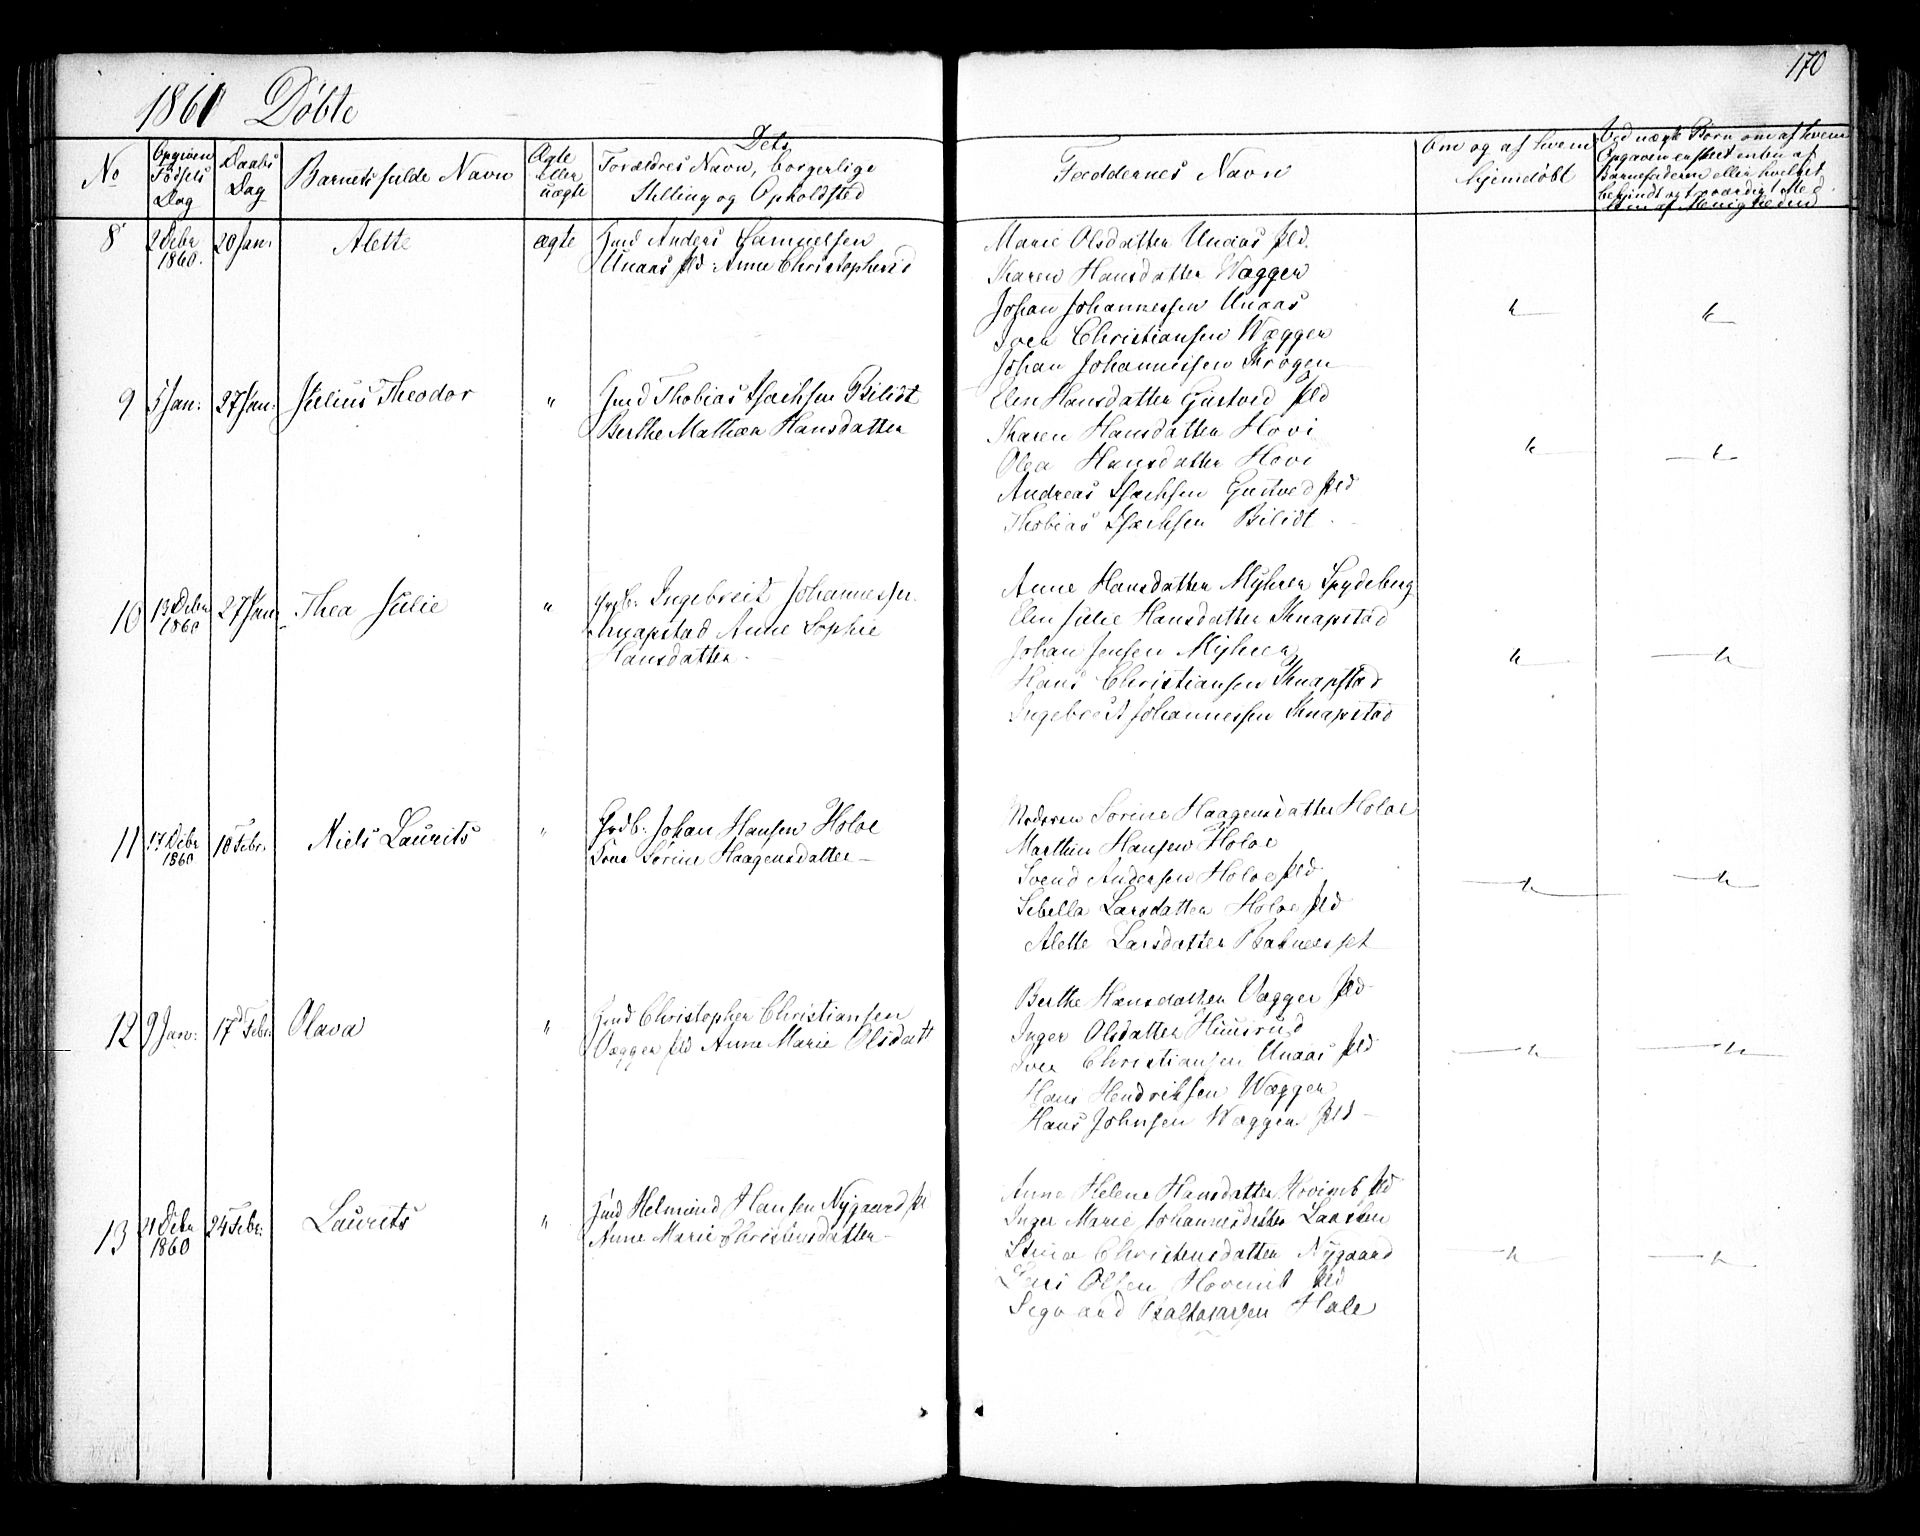 170
1861 Döbte
No
Opgiven Födsels Dag
Daabs Dag
Barnets fulde Navn
Ægte eller uægte
Dets
Forældres Navn, borgerlige
Stilling og Opholdsted
Faddernes Navn
Om og af hvem
hjemdöbt
Ved uægte Børn om af hvem
Opgaven
Barnefaderen eller hvilket
8 2 Debr 1860. 20 Jan: Alette ægte Gmd Anders Samuelsen
Unaas pld: Anne Christophersd
Marie Olsdatter Unaas pld.
Karen Hansdatter Wægger
Johan Johannessen Unaas
Iver Christiansen Wægger
Johan Johannessen Krogen
9 5 Jan: 27 Jan: Julius Theodor " Gmd Thobias Isachsen Bilidt
Berthe Mathea Hansdatter
Elen Hansdatter Gustved pld
Karen Hansdatter Hovi
Olea Hansdatter Hovi
Andreas Isachsen Gustved pld
Thobias Isachsen Bilidt
10 13 Debr 1860 27 Jan: Thea Julie " Grdb: Ingebreit Johannessen
Knapstad Anne Sophie
Hansdatter
Anne Hansdatter Myhrer Spydeberg
Elen Julie Hansdatter Knapstad
Johan Jensen Myhrer
Hans Christiansen Knapstad
Ingebreit Johannessen Knapstad
11 17 Debr 1860 10 Febr. Niels Laurits " Grdb: Johan Hansen Holoe
Sörine Haagensdatter
Moderen Sörine Haagensdatter Holoe
Marthin Hansen Holoe
Svend Andersen Holoe pld
Sebella Larsdatter Holoe pld
Alette Larsdatter
12 9 Jan: 17d Febr. Olava " Gmd Christopher Christiansen
Vægger pld Anne Marie Olsdatt
Berthe Hansdatter Vægger pld
Inger Olsdatter
Iver Christiansen Unaas pld
Hans Hendriksen Wægger
Hans Johnsen Wægger pld
13 21 Debr 1860 24 Febr. Laurits " Gmd Helmund Hansen Nygaard pl
Anne Marie Christensdatter
Anne Helene Hansdatter pld
Inger Marie Johannesdatter
Christensdatter Nygaard
Lars Olsen pld
Hole